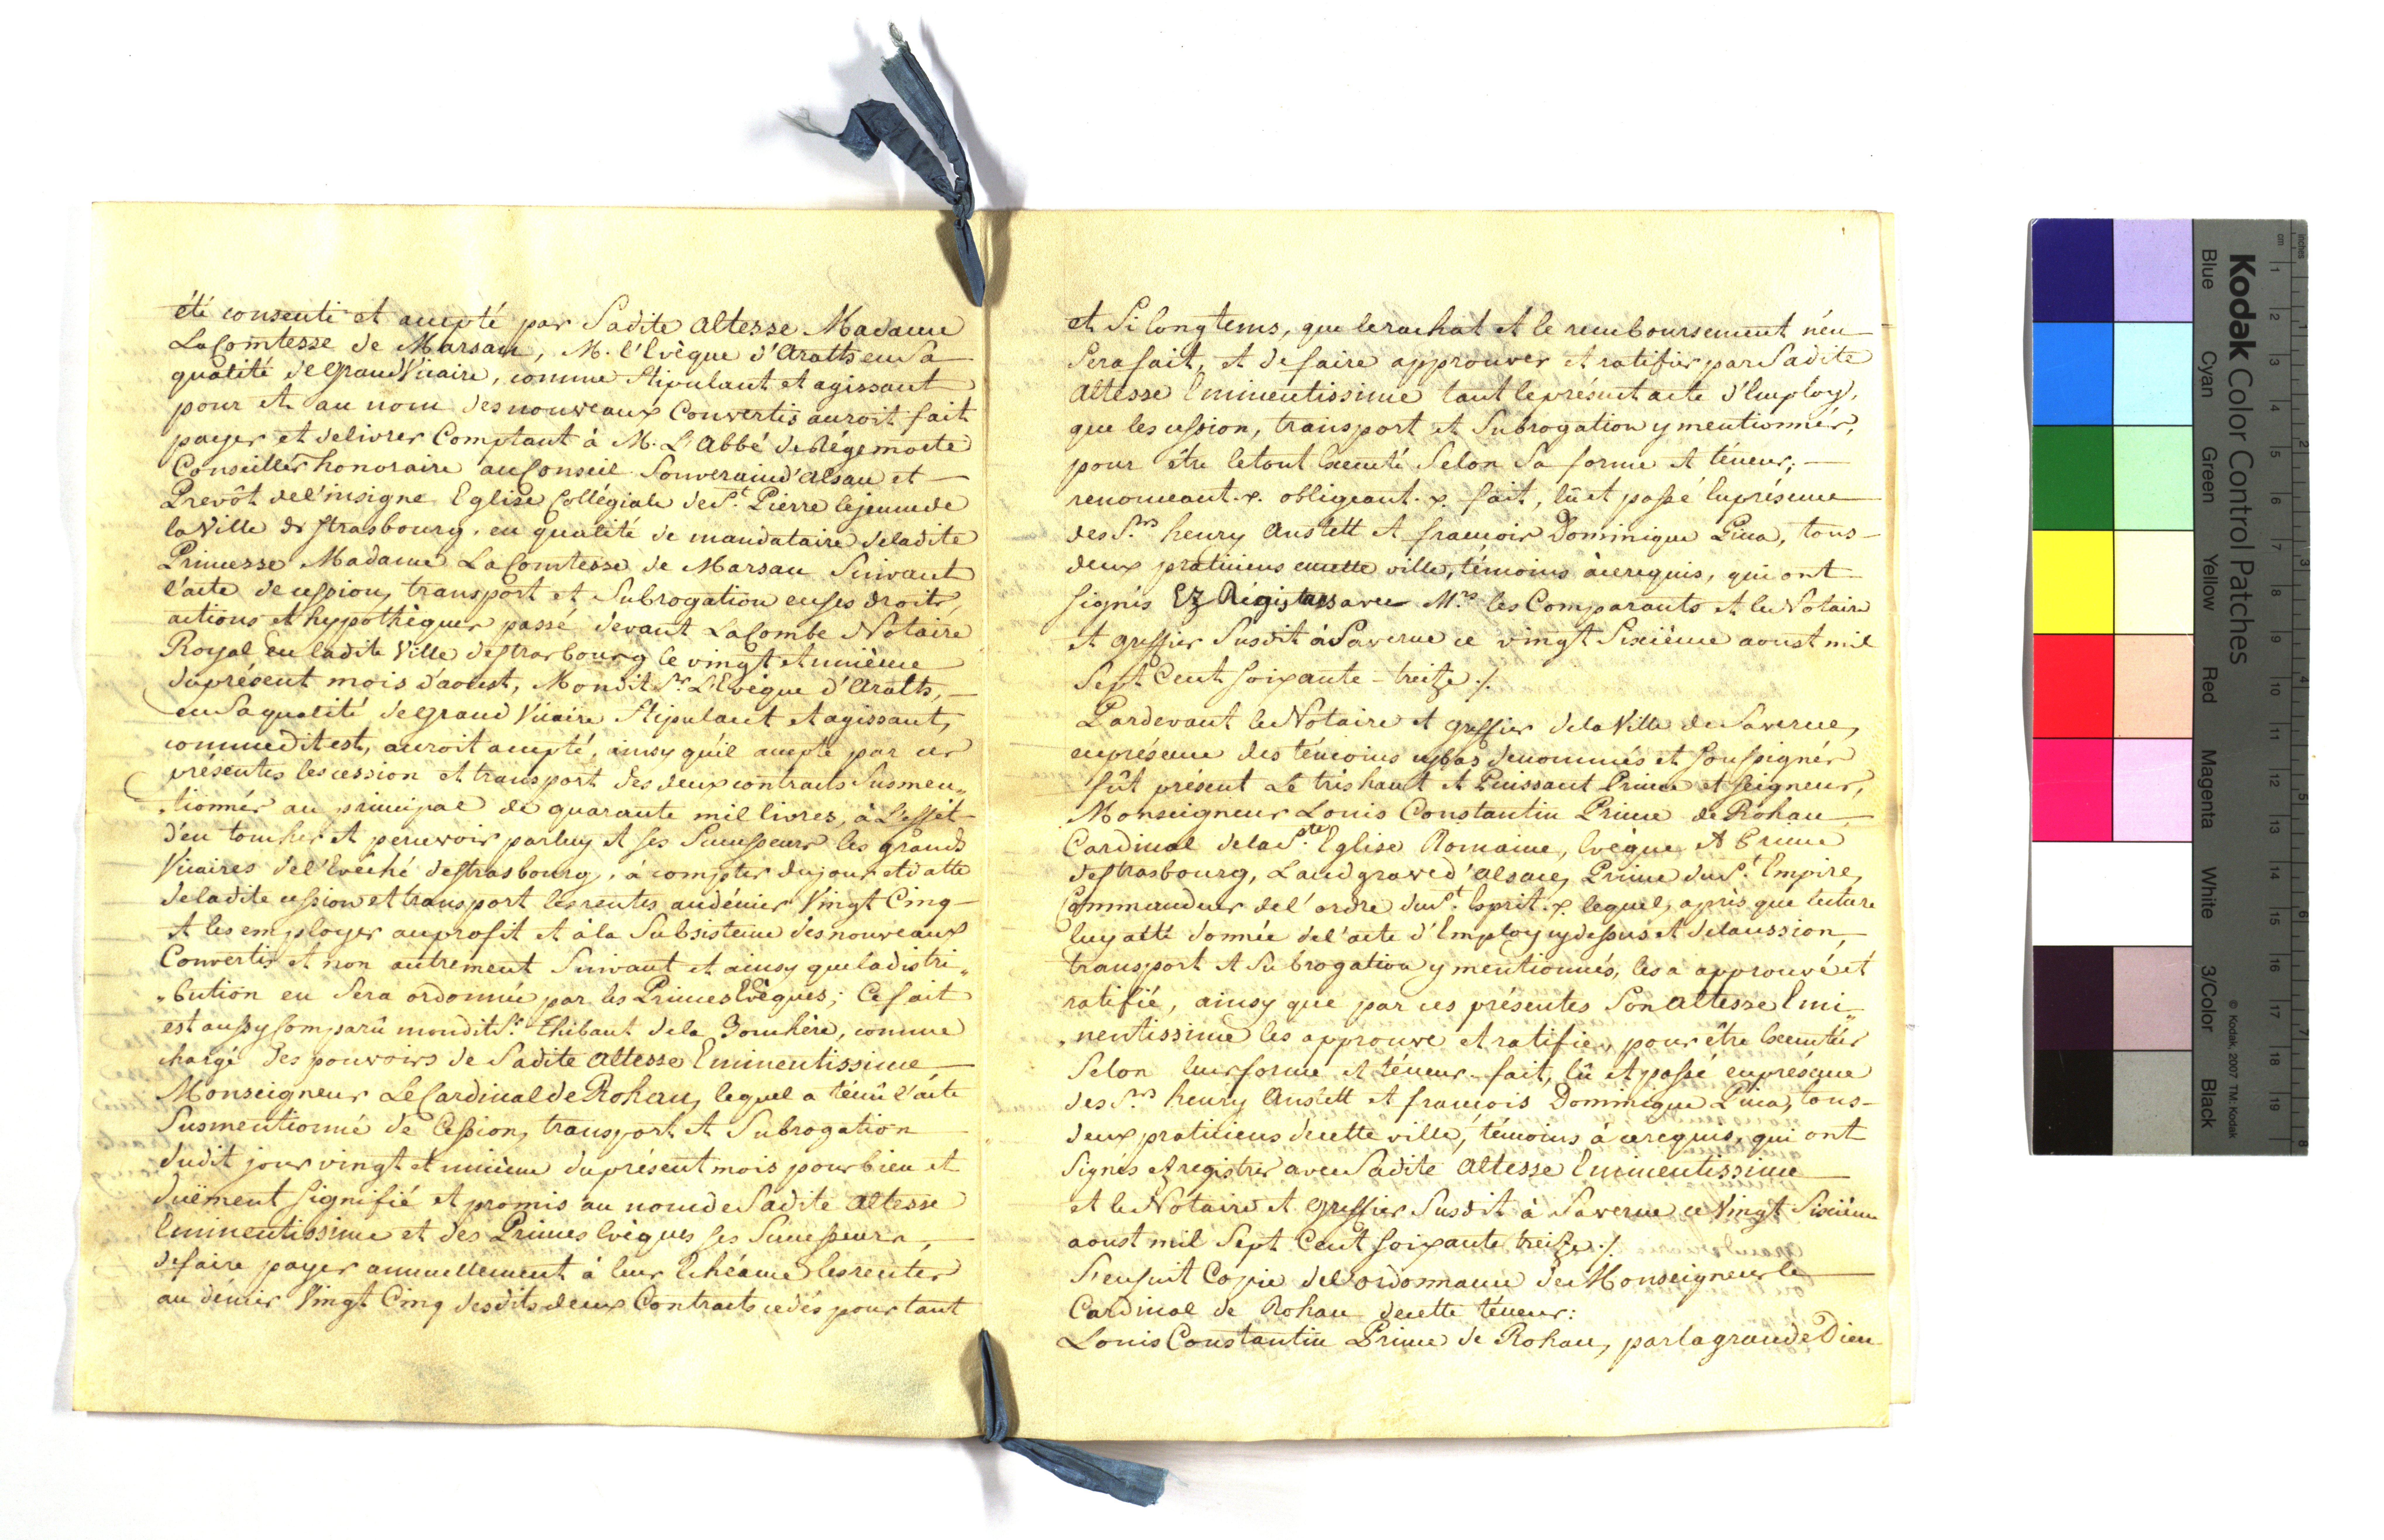 été consenti et accepté par Sadite altesse Madame
La Comtesse de Marsan, M. l'Evêque d'Arath en Sa
qualité de Grand Vicaire, comme Stipulant et agissant
pour et au nom des nouveaux Convertis auroit fait
payer et delivrer Comptant à M. L'Abbé de Régemorte
Conseiller honoraire au Conseil Souverain d'alsace et
Prevôt de l'insigne Eglise Collégiale de St. Pierre le jeune de
la Ville de Strasbourg. en qualité de mandataire de ladite
Princesse Madame La Comtesse de Marsan Suivant
l'acte de cession, transport et Subrogation en ses droits,
actions et hypothèques passé devant LaCombe Notaire
Royal En ladite Ville de Strasbourg le vingt et unième
du présent mois d'aoust, Mondit Sr. L'Evêque d'Arath,
en Sa qualité de grand Vicaire Stipulant et agissant,
comme dit est, auroit accepté, ainsy qu'il accepte par ces
présentes les cession et transport des deux contracts Susmen„
„tionnés au principal de quarante mil livres, à L'effêt
d'en toucher et percevoir par luy et ses Successeurs les grands
Vicaires de l'Evêché de Strasbourg, à compter du jour et datte
de ladite cession et transport les rentes au dénier Vingt Cinq
et les employer au profit et à la Subsistence des nouveaux
Convertis et non autrement Suivant et ainsy que la distri„
„bution en Sera ordonnée par les Princes Evêques; Ce fait
est aussy Comparû mondit Sr. Thibaut de la
chargé des pouvoirs de Sadite altesse Eminentissime
Monseigneur Le Cardinal de Rohan, lequel a ténû l'acte
Susmentionné de Cession, transport et Subrogation
dudit jour vingt et unième du présent mois pour bien et
duëment Signifié et promis au nom de Sadite altesse
Eminentissime et des Princes Evêques ses Successeurs,
de faire payer annuellement à leur Echéance les rentes
au dénier Vingt Cinq desdits deux Contracts cedés pour tant
et Si longtems, que le rachat et le remboursement n'en
Sera fait, et de faire approuver et ratifier par Sadite
altesse Eminentissime tant le présent acte d'Employ,
que les cession, transport et Subrogation y mentionnés,
pour être le tout Executé Selon Sa forme et téneur;
renonceant .x. obligeant .x. fait, lû et passé En présence
des Srs. henry Anstett et françois Dominique Pica, tous
deux praticiens en cette ville, témoins à ce requis, qui ont
signés Ez Régistres avec Mrs. les Comparants et le Notaire
et greffier Susdit à Saverne ce vingt Sixième aoust mil
Sept Cent Soixante-treize ./.
Pardevant le Notaire et greffier de la Ville de Saverne,
en présence des témoins cy bas denommés et Soussignés
fût présent Le très haut et Puissant Prince et Seigneur,
Monseigneur Louis Constantin Prince de Rohan
Cardinal de la Ste. Eglise Romaine, Evêque et Prince
de Strasbourg, Landgrave d'alsace, Prince du St. Empire,
Commandeur de l'ordre du St. Esprit .x. lequel, après que lecture
luy a été donnée de l'acte d'Employ cy dessus et de la cession,
transport et Subrogation y mentionnés, les a approuvé et
ratifié, ainsy que par ces présentes Son altesse Emi„
„nentissime les approuve et ratifie, pour être Executés
Selon leur forme et téneur. fait, lû et passé en présence
des Srs. henry Anstett et françois Dominique Pica, tous
deux praticiens de cette ville, témoins à ce requis, qui ont
Signés Ez registres avec Sadite altesse Eminentissime
et le Notaire et greffier Susdit à Saverne ce Vingt Sixième
aoust mil Sept Cent Soixante treize ./.
S'ensuit Copie de l'ordonnance de Monseigneur le
Cardinal de Rohan de cette téneur:
Louis Constantin Prince de Rohan, par la grace de Dieu
Kodak Color Control Patches
Blue Cyan Green Yellow Red Magenta White 3/Color Black
© Kodak, 2007 TM: Kodak
inches 1 2 3 4 5 6 7 8
cm 1 2 3 4 5 6 7 8 9 10 11 12 13 14 15 16 17 18 19